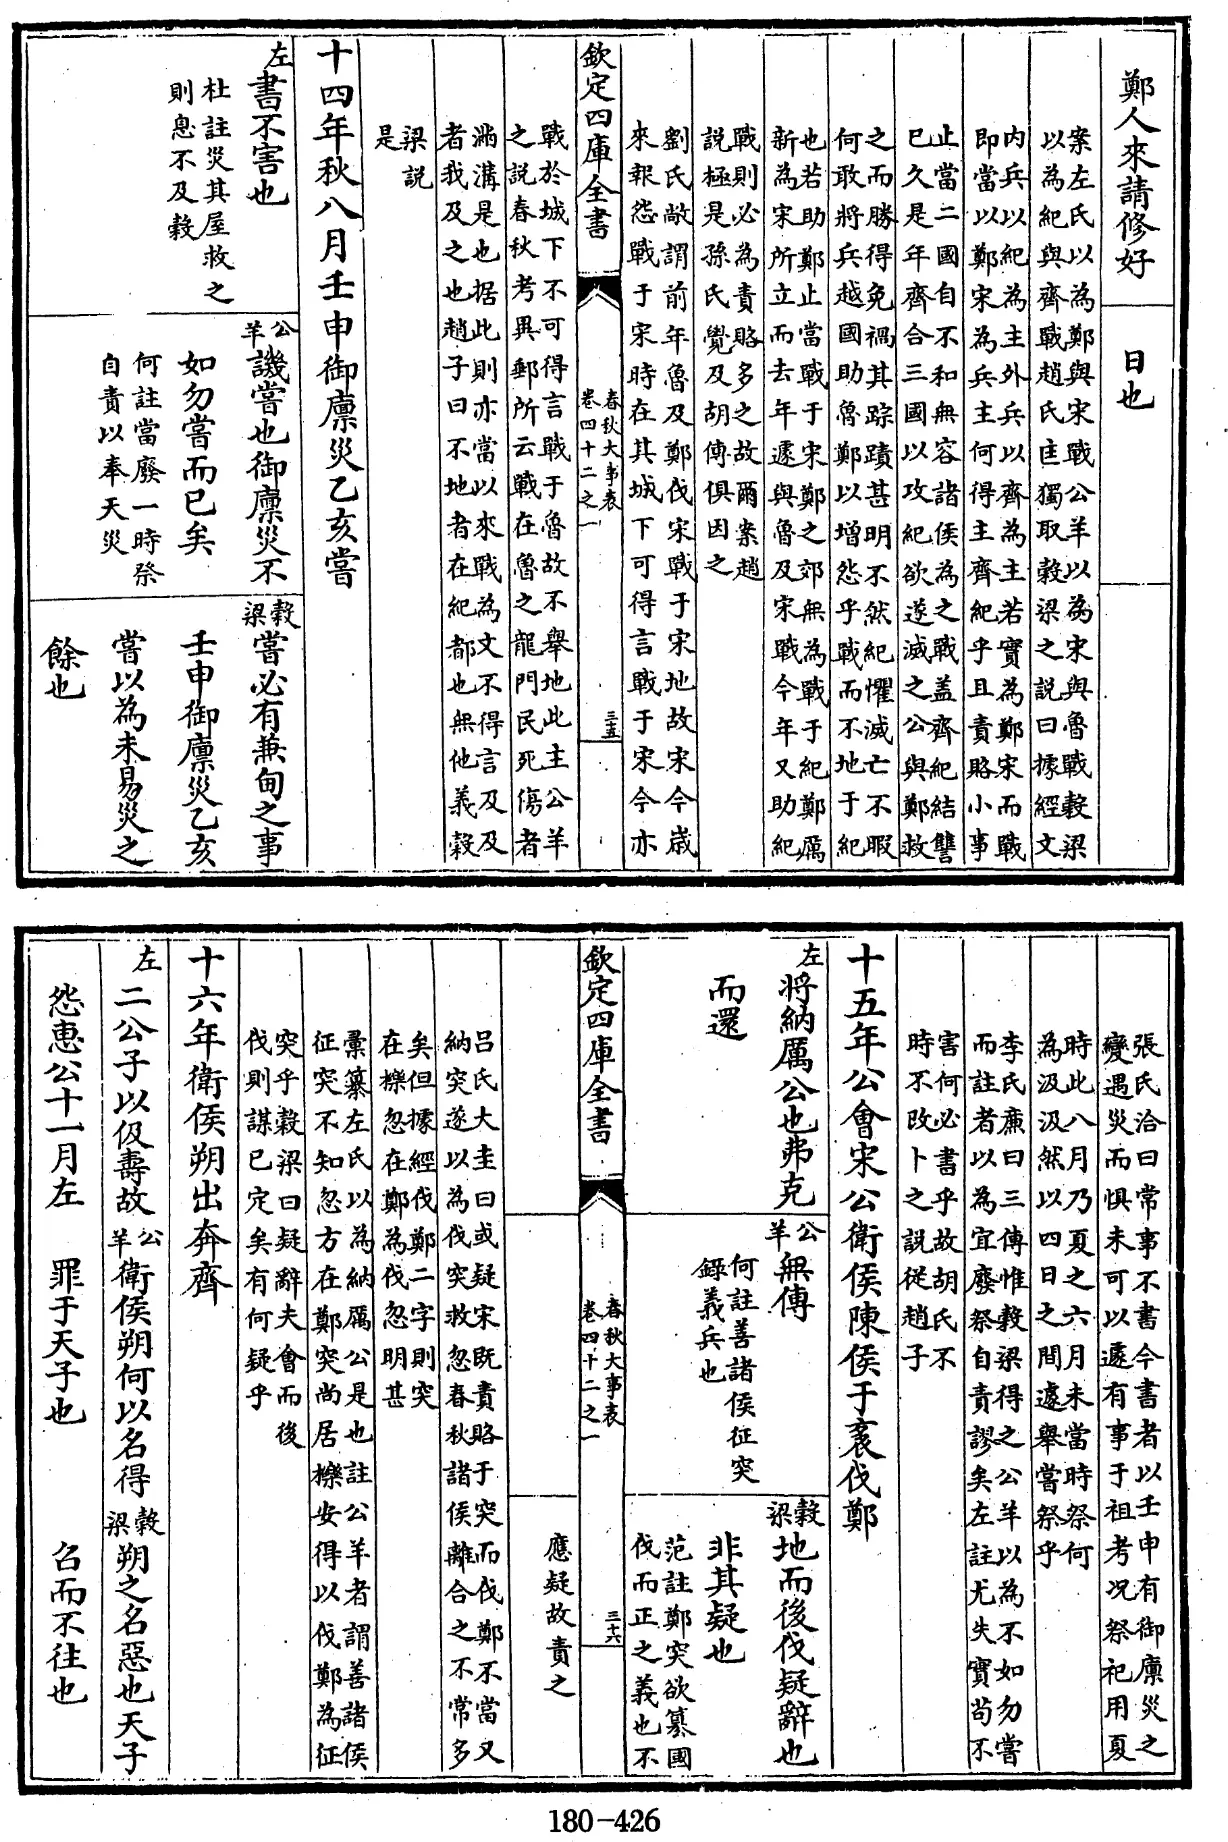 鄭人來請修好
日也
案左氏以為鄭與宋戰公羊以為宋與魯戰穀梁
以為紀與齊戰趙氏匡獨取穀梁之説曰據經文
内兵以紀為主外兵以齊為主若實為鄭宋而戰
即當以鄭宋為兵主何得主齊紀乎且責賂小事
止當二國自不和無容諸侯為之戰盖齊紀結讐
已久是年齊合三國以攻紀欲遂滅之公與鄭救
之而勝得免禍其踪蹟甚明不然紀懼滅亡不暇
何敢將兵越國助魯鄭以增怨乎戰而不地于紀
也若助鄭止當戰于宋鄭之郊無為戰于紀鄭厲
新為宋所立而去年遽與魯及宋戰今年又助紀
戰則必為責賂多之故爾案趙
説極是孫氏覺及胡傳俱因之
劉氏敞謂前年魯及鄭伐宋戰于宋地故宋今歲
來報怨戰于宋時在其城下可得言戰于宋今亦
欽定四庫全書
春秋大事表
卷四十二之一
三五
戰於城下不可得言戰于魯故不舉地此主公羊
之説春秋考異郵所云戰在魯之龍門民死傷者
滿溝是也据此則亦當以來戰為文不得言及及
者我及之也趙子曰不地者在紀都也無他義穀
梁説
是
十四年秋八月壬申御廩災乙亥嘗
左
書不害也
杜註災其屋救之
則息不及穀
公羊
譏嘗也御廩災不
如勿嘗而已矣
何註當廢一時祭
自責以奉天災
穀梁
嘗必有兼甸之事
壬申御廩災乙亥
嘗以為未易災之
餘也
張氏洽曰常事不書今書者以壬申有御廩災之
變遇災而惧未可以遽有事于祖考况祭祀用夏
時此八月乃夏之六月未當時祭何
為汲汲然以四日之間遽舉嘗祭乎
李氏廉曰三傳惟穀梁得之公羊以為不如勿嘗
而註者以為宜廢祭自責謬矣左註尤失實茍不
害何必書乎故胡氏不
時不改卜之説從趙子
十五年公會宋公衛侯陳侯于袲伐鄭
左
將納厲公也弗克
而還
公羊
無傳
何註善諸侯征突
錄義兵也
穀梁
地而後伐疑辭也
非其疑也
范註鄭突欲簒國
伐而正之義也不
欽定四庫全書
春秋大事表
卷四十二之一
三十六
應疑故責之
吕氏大圭曰或疑宋既責賂于突而伐鄭不當又
納突遂以為伐突救忽春秋諸侯離合之不常多
矣但據經伐鄭二字則突
在櫟忽在鄭為伐忽明甚
彚纂左氏以為納厲公是也註公羊者謂善諸侯
征突不知忽方在鄭突尚居櫟安得以伐鄭為征
突乎穀梁曰疑辭夫會而後
伐則謀已定矣有何疑乎
十六年衛侯朔出奔齊
左
二公子以伋壽故
怨惠公十一月左
公羊
衛侯朔何以名得
罪于天子也
穀梁
朔之名惡也天子
召而不往也
180-426